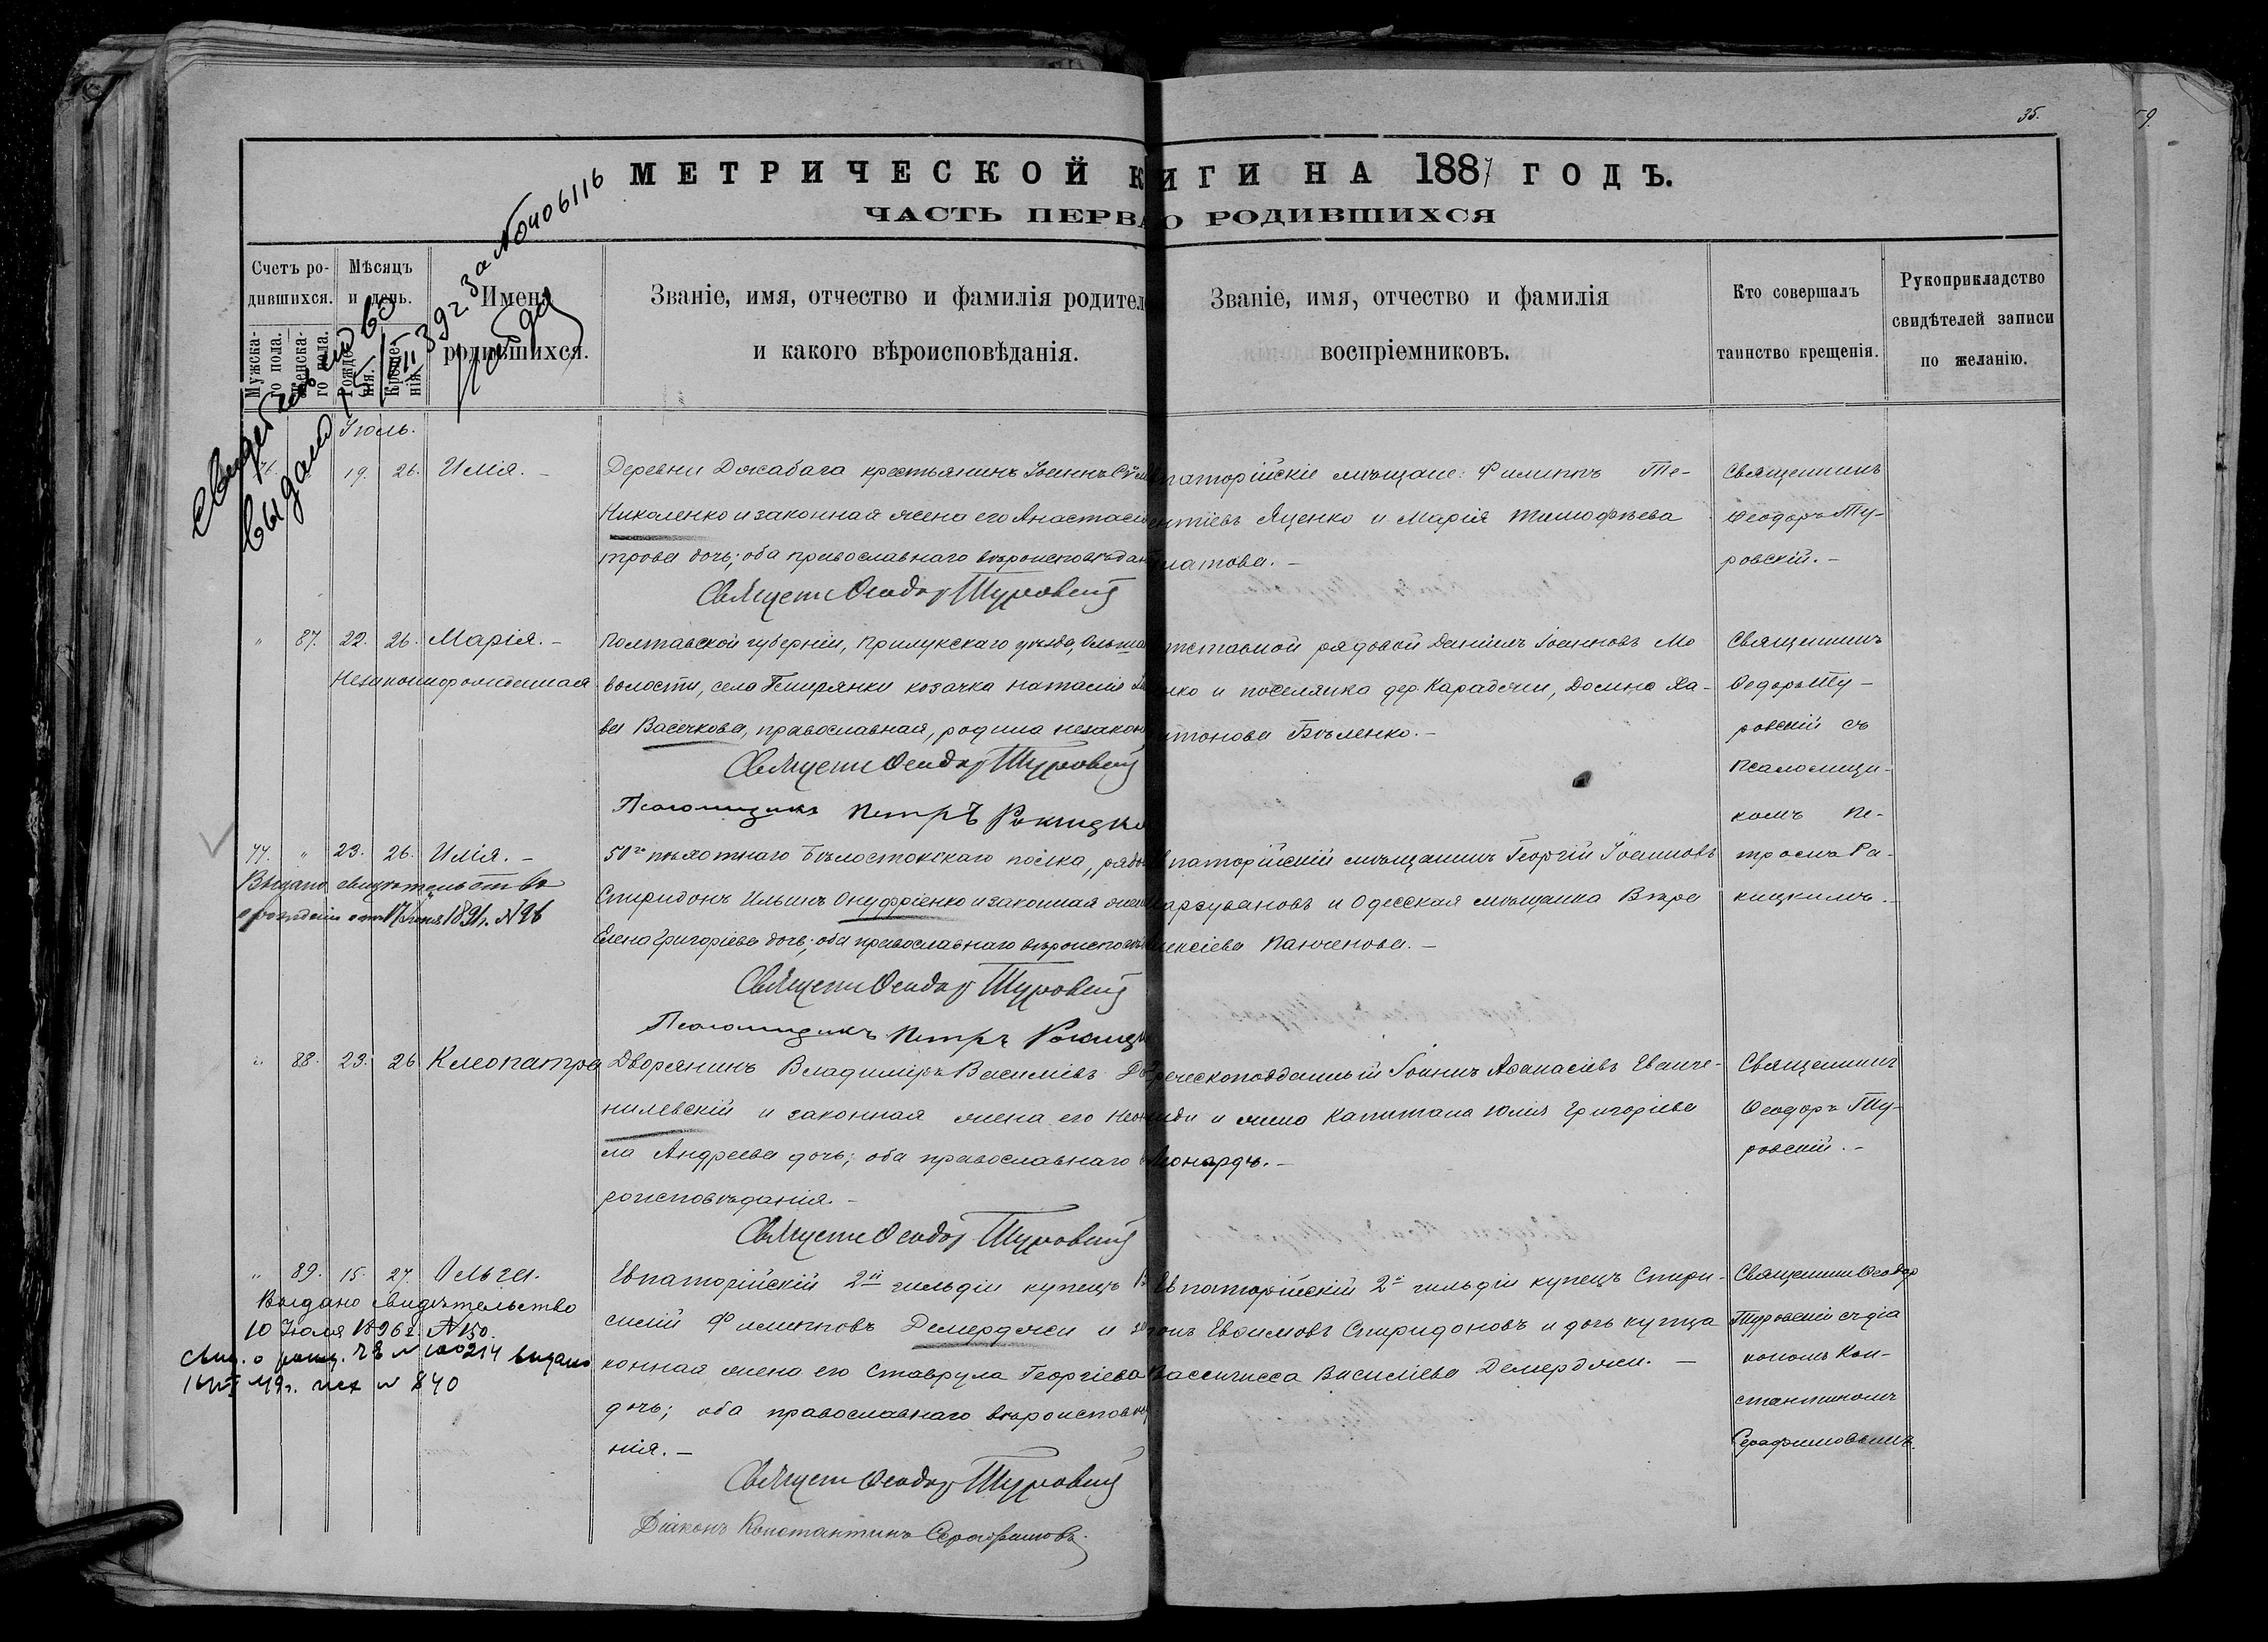 35.
59.
МЕТРИЧЕСКОЙ К ИГИ НА 1887 ГОДЪ.
ЧАСТЬ ПЕРВА О РОДИВШИХСЯ
Счетъ ро-
дившихся.
Мужска-
го пола.
Женска-
го пола.
Мѣсяцъ
и день.
Рожде-
нія.
Креще-
нія.
Имена
родившихся.
Званіе, имя, отчество и фамилія родител
и какого вѣроисповѣданія.
Званіе, имя, отчество и фамилія
воспріемниковъ.
Кто совершалъ
таинство крещенія.
Рукоприкладство
свидѣтелей записи
по желанію.
выдано
392 за № 0406116
Іюль.
76. 19. 26. Илія. –
Деревни Джабага крестьянинъ Іоаннъ
Николенко и законная жена его Анастасія
трова дочь; оба православнаго вѣроисповѣдан
Феодоръ Туровскій
паторійскіе мѣщане: Филиппъ Те-
ентіевъ Яценко и Марія Тимофѣева
патова. –
Священникъ
Феодоръ Ту-
ровскій. –
" 87. 22. 26. Марія. –
Незаконнорожденная
Полтавской губерніи, Прилукскаго уѣзда, Ольша
волости, села Гмирянки козачка Наталія
ва Васечкова, православная, родила незакон
Феодоръ Туровскій
Псаломщикъ Петръ Рокицк
тставной рядовой Даніилъ Іоанновъ Мо
нко и поселянка дер. Караджи, Домна Ха-
итонова Бѣленко. –
Священникъ
Федоръ Ту-
ровскій съ
псаломщи-
комъ Пе-
тромъ Ра-
кицкимъ. –
77. " 23. 26. Илія. –
Выдано свидѣтельство
о рожденіи 1891г. № 96
50го пѣхотнаго Бѣлостокскаго полка, рядо
Спиридонъ Ильинъ Онуфріенко и законная жена
Елена Григоріева дочь; оба православнаго вѣроисповѣ
Феодоръ Туровскій
Псаломщикъ Петръ Рокицк
паторійскій мѣщанинъ Георгій Іоанновъ
аргувановъ и Одесская мѣщанка Вѣра
лексіева Панченова. –
" 88. 23. 26 Клеопатра
Дворянинъ Владиміръ Василіевъ Да
нилевскій и законная жена его Неон
ла Андреева дочь; оба православнаго в
роисповѣданія. –
Феодоръ Туровскій
реческоподданный Іоаннъ Аѳанасіевъ Еванге-
лиди и жена Капитана Юлія Григоріева
Монардъ. –
Священникъ
Феодоръ Ту-
ровскій. –
" 89. 15. 27. Ольга.
Выдано Свидѣтельство
10 Іюля 1896г. № 150.
Евпаторійскій 2й гильдіи купецъ
силій Филипповъ Демерджи и за
конная жена его Ставрула Георгіева
дочь; оба православнаго вѣроисповѣд
нія. –
Феодоръ Туровскій
Діаконъ Константинъ Серафимовъ.
Евпаторійскій 2й гильдіи купецъ Спири-
донъ Евѳимовъ Спиридоновъ и дочь купца
Вассилисса Василіева Демерджи. –
Священникъ Феодоръ
Туровскій съ діа
кономъ Кон-
стантиномъ
Серафимовымъ.